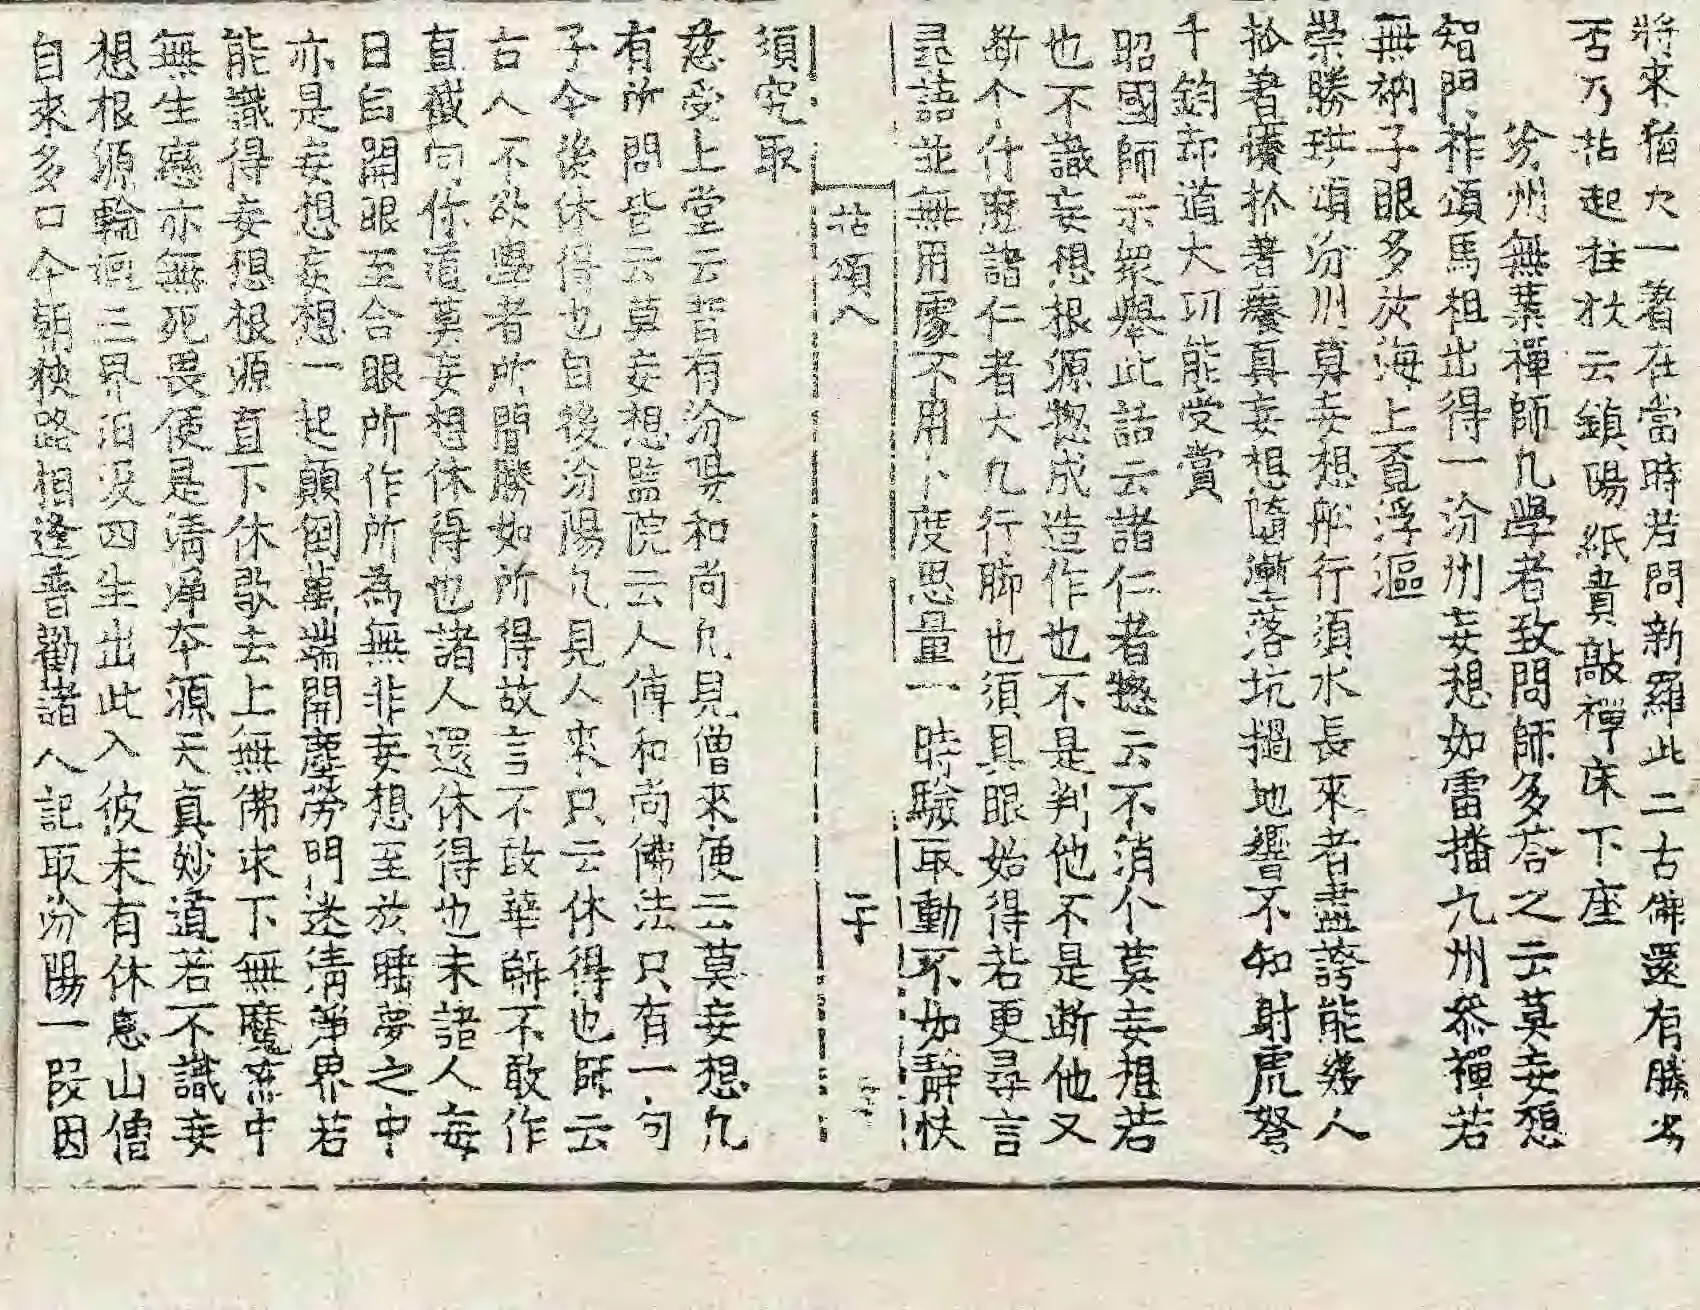 將來猶欠一著在當時若問新羅此二古佛還有勝劣
否乃拈起拄杖云鎮陽紙貴敲禪床下座
汾州無業禪師凡學者致問師多荅之云莫妄想
智門祚頌馬祖出得一汾州妄想如雷播九州叅禪若
無衲子眼多於海上覔浮漚
崇勝珙頌汾州莫妄想船行須水長來者盡誇能幾人
拾著癢抓著癢真妄想隨漸墮落坑撾地響不知射虎弩
千鈞却道大功能受賞
昭國師示衆舉此話云諸仁者惣云不消个莫妄想若
也不識妄想根源惣成造作也不是判他不是斷他又
斷个什麽諸仁者大凡行脚也須具眼始得若更尋言
尋語並無用處不用卜度思量一時驗取動不如靜快
拈頌八
二十
須究取
慈受上堂云昔有汾州和尚凡見僧來便云莫妄想凡
有所問皆云莫妄想監院云人傳和尚佛法只有一句
子今後休得也自後汾陽凡見人來只云休得也師云
古人不欲學者所聞勝如所得故言不敢華辭不敢作
直截句你道莫妄想休得也諸人還休得也未諸人每
日自開眼至合眼所作所為無非妄想至於睡夢之中
亦是妄想妄想一起顛倒萬端開塵勞門迷清淨界若
能識得妄想根源直下休歇去上無佛求下無魔怎中
無生戀亦無死畏便是清淨本源天真妙道若不識妄
想根源輪迴三界汩沒四生出此入彼未有休息山僧
自來多口今朝狹路相逢普勸諸人記取汾陽一段因